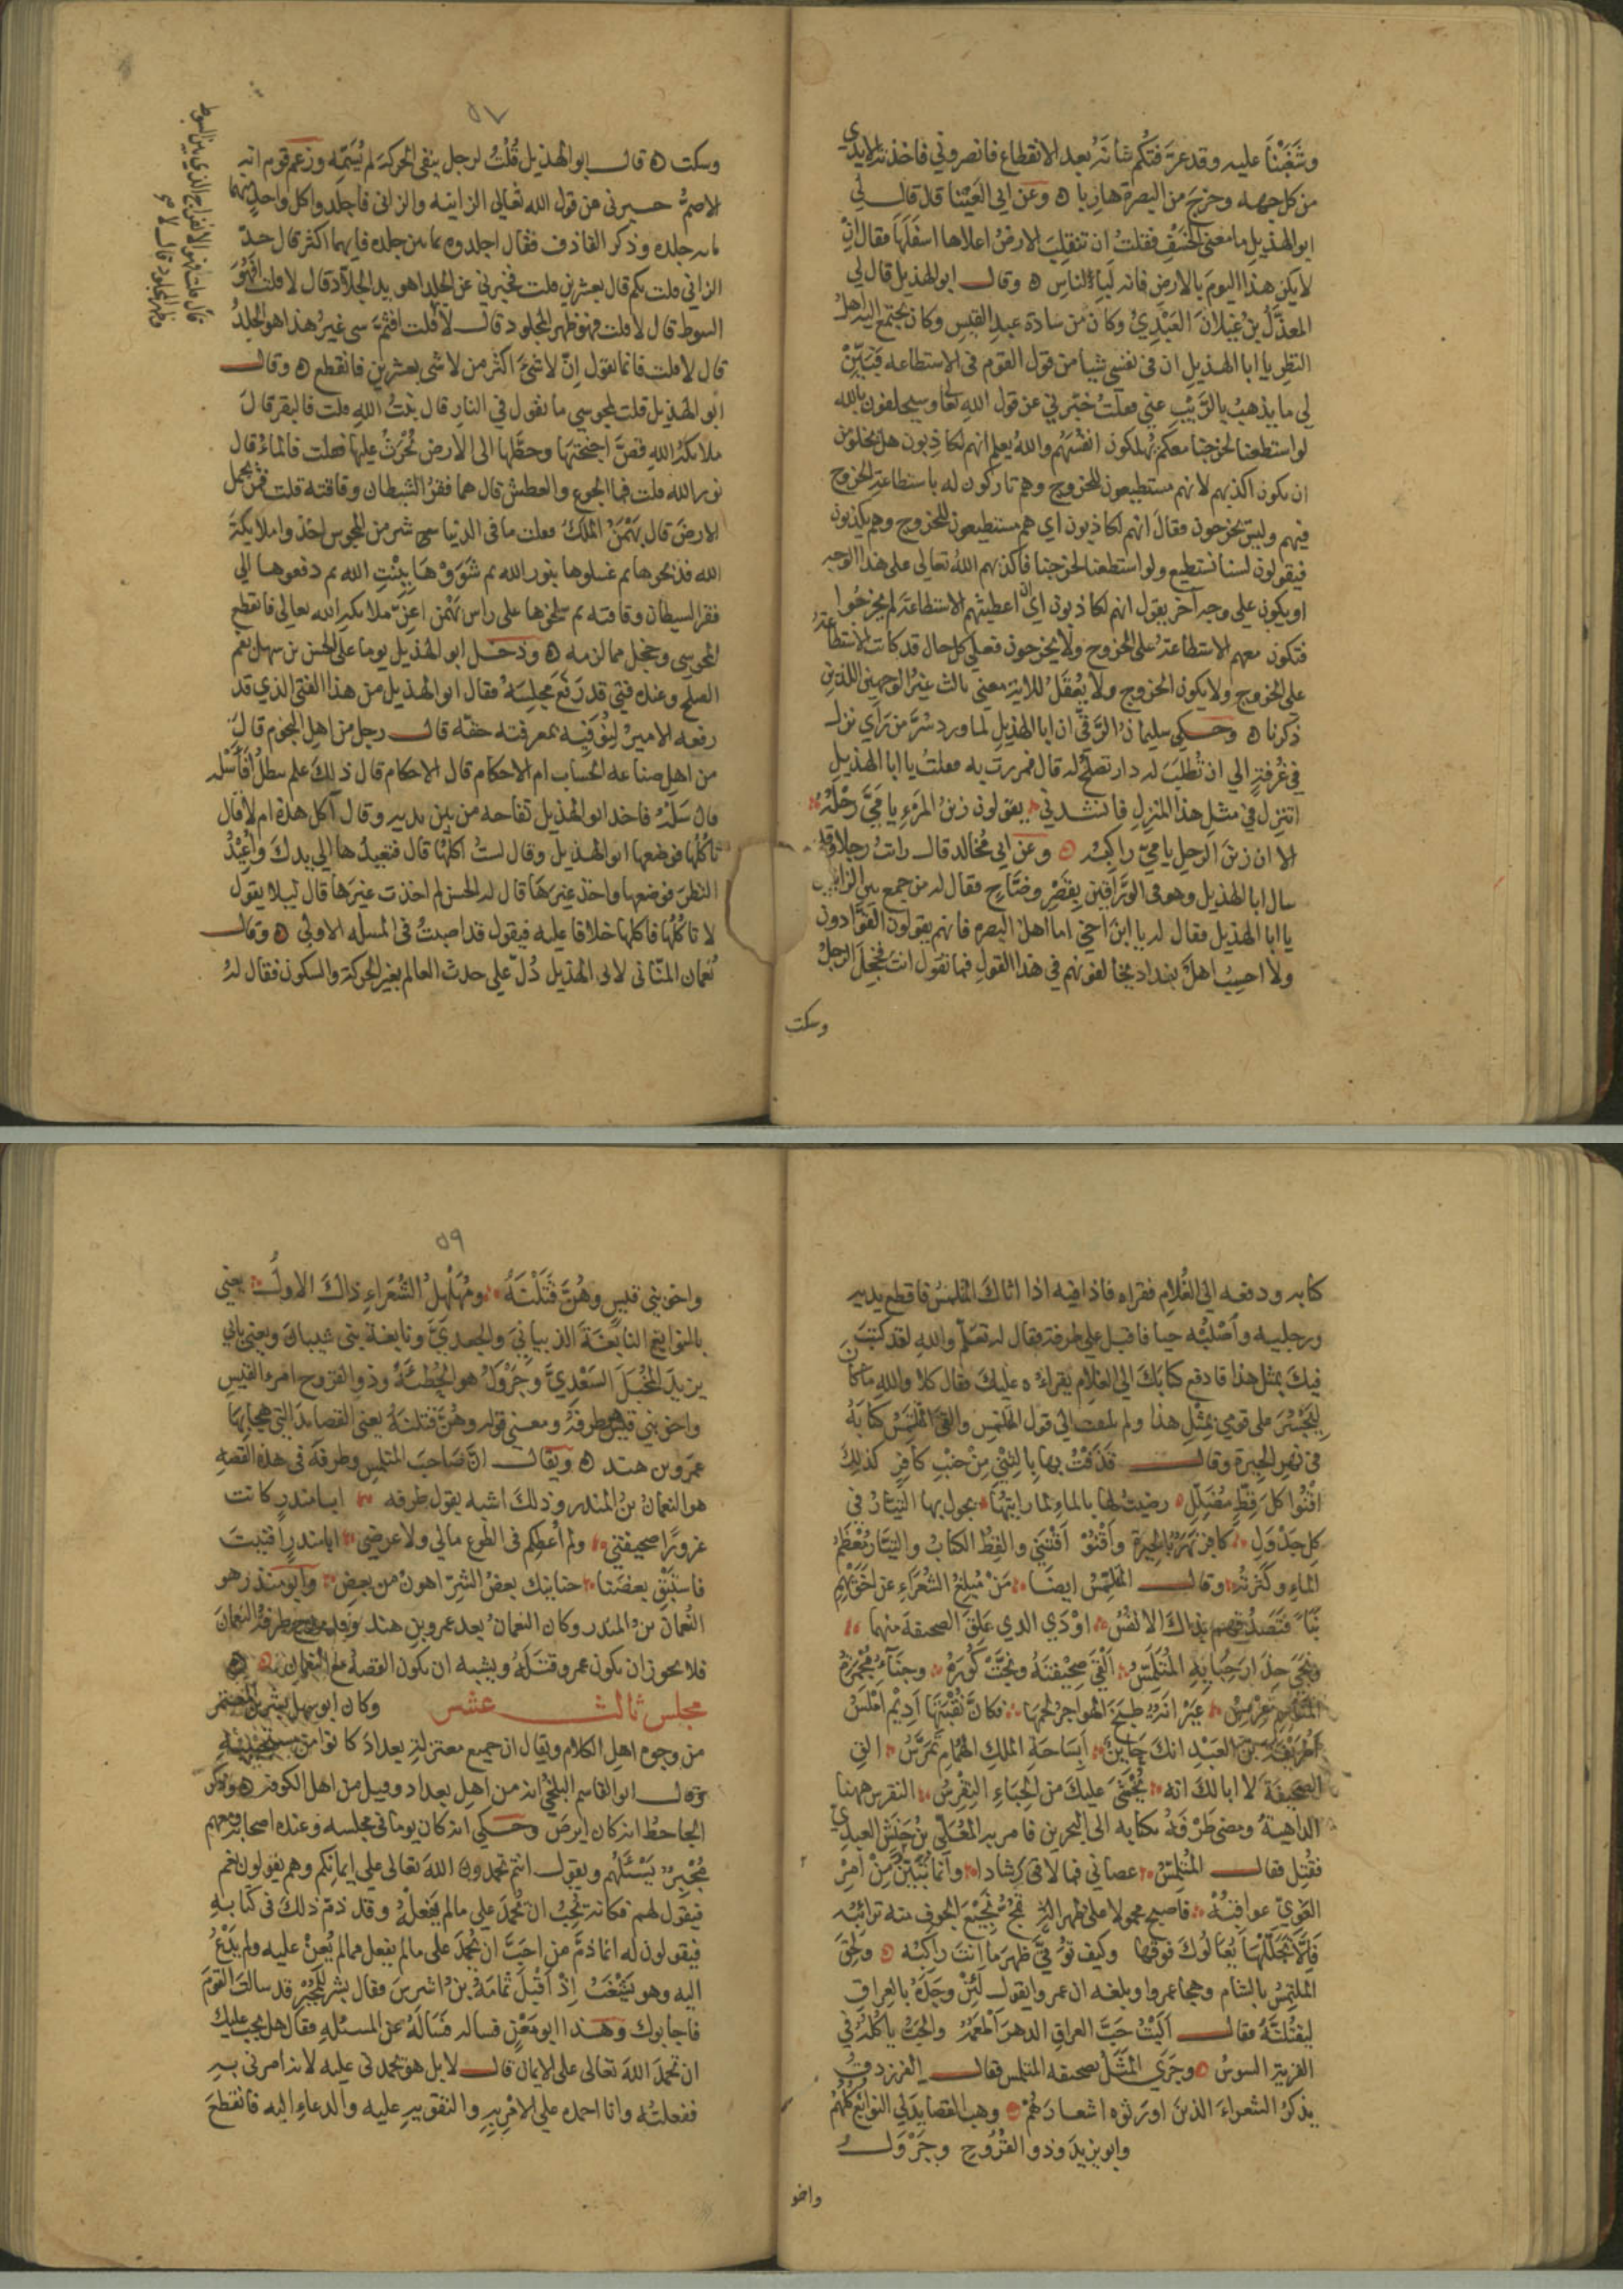 وشغبنا عليه وقد عرفتكم شانه بعد الانقطاع فانصروني فاخذته الايدي
من كل جهه وخرج من البصرة هاربا ه وعن ابي العينا قال قال لي
ابو الهذيل ما معنى الخسف فقلت ان تنقلب الارض اعلاها اسفلها فقال ان
لا يكن هذا اليوم بالارض فانه لبالناس ه وقال ابو الهذيل قال لي
المعذل بن غيلان العبدي وكان من سادة عبد القيس وكان يجتمع اليه اهل
النظر يا ابا الهذيل ان في نفسي شيا من قول القوم في الاستطاعه فبين
لي ما يذهب بالريب عني فقلت خبرني عن قول الله تعالى وسيحلفون بالله
لو استطعنا لخرجنا معكم يهلكون انفسهم والله يعلم انهم لكاذبون هل يخلو من
ان يكون اكذبهم لانهم مستطيعون للخروج وهم تاركون له باستطاعة الخروج
فيهم وليس يخرجون فقال انهم لكاذبون اي هم مستطيعون للخروج وهم يكذبون
فيقولون لسنا نستطيع ولو استطعنا لخرجنا فاكذبهم الله تعالى على هذا الوجه
او يكون على وجه آخر يقول انهم لكاذبون اي ان اعطيتهم الاستطاعة لم يخرجوا
فتكون معهم الاستطاعة على الخروج ولا يخرجون فعلى كل حال قد كانت الاستطاعة
على الخروج ولا يكون الخروج ولا يعقل للاية معنى ثالث غير الوجهين اللذين
ذكرنا ه وحكى سليمان الرقي ان ابا الهذيل لما ورد سر من راي نزل
في غرفة الي ان تطلب له دار تصلح له قال فمررت به فقلت يا ابا الهذيل
اتنزل في مثل هذا المنزل فانشدني يقولون زين المرء يا مي رحله
الا ان زين الرحل يا مي راكبه ه وعن ابي مخالد قال رايت رجلا وقد
سال ابا الهذيل وهو في الوراقين بقصر وضاح فقال له من جمع بين الزانيين
يا ابا الهذيل فقال له يا ابن اخي اما اهل البصره فانهم يقولون القوادون
ولا احسب اهل بغداد يخالفونهم في هذا القول فما تقول انت فخجل الرجل
وسكت
٥٧
وسكت ه قال ابو الهذيل قلت لرجل ينفي الحركة لم يسمه وزعم قوم انه
الاصم خبرني عن قول الله تعالى الزانيه والزاني فاجلدوا كل واحد منهما
مايه جلده وذكر القاذف فقال اجلدوه ثمانين جلده فايهما اكثر قال حد
الزاني قلت بكم قال بعشرين قلت فخبرني عن الجلد اهو يد الجلاد قال لا قلت افهو
السوط قال لا قلت فهو ظهر المجلود قال لا قلت افثم شي غير هذا هو الجلد
قال لا قلت فانما تقول ان لا شئ اكثر من لا شي بعشرين فانقطع ه وقال
ابو الهذيل قلت لمجوسي ما تقول في النار قال بنت الله قلت فالبقر قال
ملايكة الله قص اجنحتها وحطها الى الارض تحرث عليها فقلت فالماء قال
نور الله قلت فما الجوع والعطش قال هما فقر الشيطان وفاقته قلت فمن يحمل
الارض قال بهمن الملك فقلت ما في الدنيا شي شر من المجوس اخذوا ملايكة
الله فذبحوها ثم غسلوها بنور الله ثم شووها ببنت الله ثم دفعوها الي
فقر الشيطان وفاقته ثم سلحوها على راس بهمن اعز ملايكة الله تعالى فانقطع
المجوسي وخجل مما لزمه ه ودخل ابو الهذيل يوما على الحسن بن سهل بفم
الصلح وعنده فتي قد رفع مجلسه فقال ابو الهذيل من هذا الفتى الذي قد
رفعه الامير لنوفيه بمعرفته حقه قال رجل من اهل النجوم قال
من اهل صناعة الحساب ام الاحكام قال الاحكام قال ذلك علم يبطل افاسله
قال سله فاخذ ابو الهذيل تفاحه من بين يديه وقال آكل هذه ام لا قال
تاكلها فوضعها ابو الهذيل وقال لست آكلها قال فتعيدها الي يدك واعيد
النظر فوضعها واخذ غيرها قال له الحسن لم اخذت غيرها قال ليلا يقول
لا تاكلها فاكلها خلافا عليه فيقول قد اصبت في المسله الاولي ه وقال
نعمان المناني لابي الهذيل دل على حدث العالم بغير الحركة والسكون فقال له
كتابه ودفعه الى الغلام فقراه فاذا فيه اذا اتاك المتلمس فاقطع يديه
ورجليه واصلبه حيا فاقبل على طرفة فقال له تعلم والله لقد كتب
فيك بمثل هذا فادفع كتابك الي الغلام يقراه عليك فقال كلا والله ما كان
ليجسر على قومي بمثل هذا ولم يلتفت الي قول المتلمس والقى المتلمس كتابه
في نهر الحيرة وقال قذفت بها بالثني من جنب كافر كذلك
اقنوا كل قط مضلل رضيت لها بالماء لما رايتها يجول بها التيار في
كل جدول كافر نهر بالحيرة واقنو اقتني والقط الكتاب والتيار معظم
الماء وكثرته وقال المتلمس ايضا من مبلغ الشعراء عن اخويهم
نبا فتصدقهم بذاك الانفس اودي الذي علق الصحيفة منهما
ونجى حذار حبايه المتلمس القى صحيفته ونجت كوره وجناء مجمرة
المناسم عرمس عيرانة طبخ الهواجر لحمها فكان نقبتها اديم املس
اطريفة بن العبد انك حاين ابساحة الملك الهمام تمرس الق
الصحيفة لا ابالك انه يخشى عليك من الحباء النقرس النقرس ههنا
الداهية ومضى طرفة بكتابه الى البحرين فامر به المعلى بن حنش العبدي
فقتل فقال المتلمس عصاني فما لاقى رشادا وانما تبين من امر
الغوي عواقبه فاصبح محمولا على ظهر الة تمج نجيع الجوف منه ترائبه
فالا تجللها يعالوك فوقها وكيف توقى ظهر ما انت راكبه ه ولحق
الملتمس بالشام وهجا عمروا وبلغه ان عمروا يقول لئن وجده بالعراق
ليقتلنه فقال آليت حب العراق الدهر اطعمه والحب ياكله في
القرية السوس ه وجرى المثل بصحيفه المتلمس فقال الفرزدق
يذكر الشعراء الذين اورثوه اشعارهم وهب القصايد لي النوابغ كلهم
وابو يزيد وذو القروح وجرول
واخو
٥٩
واخو بني قيس وهن قتلنه ومهلهل الشعراء ذاك الاول يعني
بالنوابغ النابغة الذبياني والجعدي ونابغة بني شيبان ويعني بابي
يزيد المخبل السعدي وجرول هو الحطيئة وذو القروح امرو القيس
واخو بني قيس طرفة ومعنى قوله وهن قتلنه يعني القصايد التي هجا بها
عمرو بن هند ه ويقال ان صاحب المتلمس وطرفة في هذه القصه
هو النعمان بن المنذر وذلك اشبه بقول طرفه ابا منذر كانت
غرورا صحيفتي ولم اعطكم في الطوع مالي ولا عرضي ابا منذر افنيت
فاستبق بعضنا حنانيك بعض الشر اهون من بعض وابو منذر هو
النعمان بن المنذر وكان النعمان بعد عمرو بن هند وقد مدح طرفة النعمان
فلا يجوز ان يكون عمرو قتله ويشبه ان يكون القصة مع النعمان ه
مجلس ثالث عشر وكان ابو سهل بشر بن المعتمر
من وجوه اهل الكلام ويقال ان جميع معتزلة بغداد كانوا من مستجيبيه
وقال ابو القاسم البلخي انه من اهل بغداد وقيل من اهل الكوفة ه وذكر
الجاحظ انه كان ابرص وحكي انه كان يوما في مجلسه وعنده اصحابه ومعهم
مجبر يسئلهم ويقول انتم تحمدون الله تعالى على ايمانكم وهم يقولون نعم
فيقول لهم فكانه يحب ان يحمد على ما لم يفعل وقد ذم ذلك في كتابه
فيقولون له انما ذم من احب ان يحمد على ما لم يفعل ممن لم يعن عليه ولم يدع
اليه وهو يشغب اذ اقبل ثمامة بن اشرس فقال بشر للمجبر قد سالت القوم
فاجابوك وهذا ابو معن فساله فساله عن المسئله فقال هل يجب عليك
ان تحمد الله تعالى على الايمان قال لا بل هو يحمدني عليه لانه امرني به
ففعلته وانا احمده على الامر به والتقويه عليه والدعاء اليه فانقطع